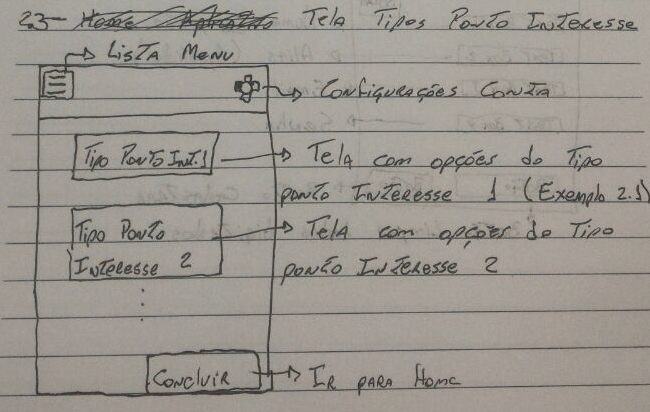 2.3- Home Aplicativo Tela Tipos Ponto Interesse
Lista Menu
Configurações Conta
Tipo Ponto Int.1
Tela com opções do Tipo
ponto Interesse 1 (Exemplo 2.1)
Tipo Ponto
Interesse 2
Tela com opções do Tipo
ponto Interesse 2
Concluir
Ir para Home